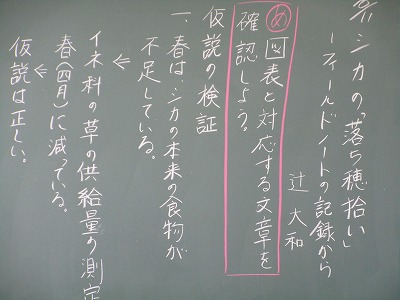 シカの「落ち穂拾い」
ーフィールドノートの記録から
辻 大和
め 図表と対応する文章を
確認しよう。
仮説の検証
一、春は、シカの本来の食物が
不足している。
↓
イネ科の草の供給量の測定
春(四月)に減っている。
↓
仮説は正しい。